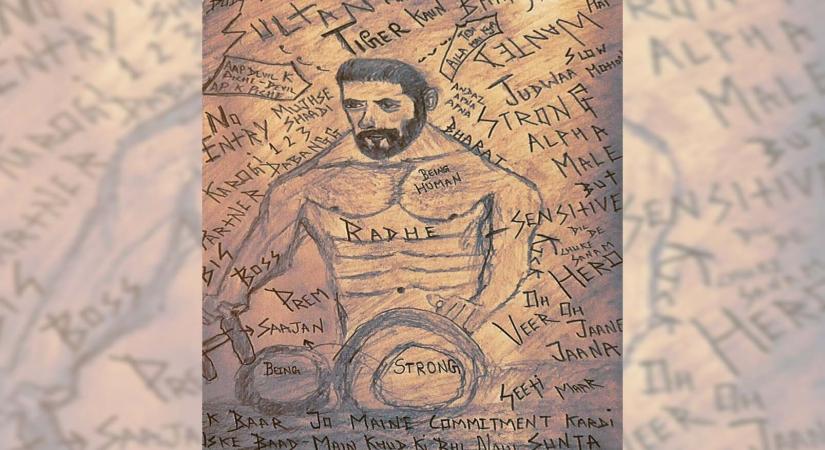 SULTAN
TIGER
KAUN
WANTED
AAP DEVIL K
PICHE - DEVIL
AAP K PICHE
JUDWAA
SLOW
ANDAZ
APNA
APNA
NO
ENTRY
MUJHSE
SHAADI
KAROGI
123
DABANGG
STRONG
ALPHA
MALE
BUT
SENSITIVE
BHARAT
BEING
HUMAN
RADHE
PARTNER
DIL
DE
CHUKE
SANAM
KICK
HERO
BOSS
PREM
SAAJAN
OH
OH
JAANE
JAANA
VEER
BEING
STRONG
SEETI MAAR
K BAAR JO MAINE COMMITMENT KARDI
ISKE BAAD - MAIN KHUD KI BHI NAHI SUNTA